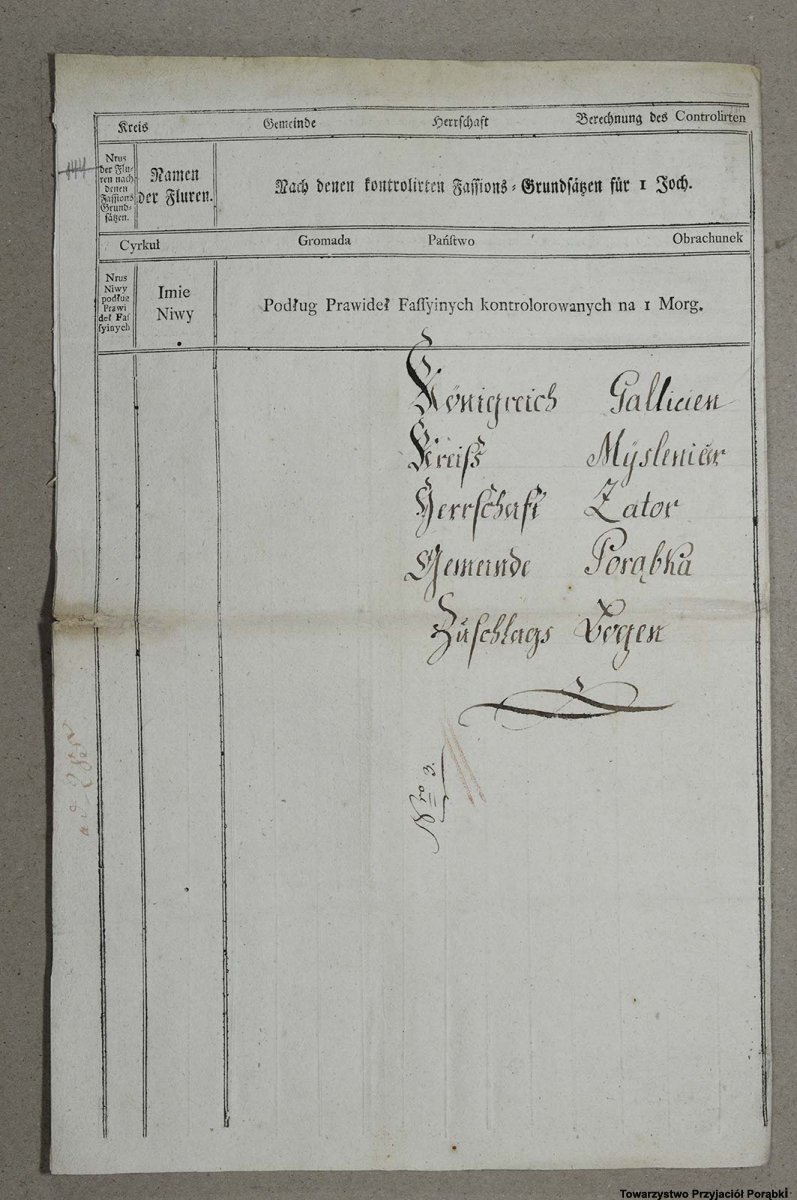 Kreis Gemeinde Herrschaft Berechnung des Controlirten
Nrus
der Flu-
ren nach
denen
Fassions
Grund-
sätzen.
Namen
der Fluren.
Nach denen kontrolirten Fassions-Grundsätzen für 1 Joch.
Cyrkuł Gromada Pańſtwo Obrachunek
Nrus
Niwy
podług
Prawi
deł Faſ
ſyinych
Imie
Niwy
Podług Prawideł Faſſyinych kontrolorowanych na 1 Morg.
Königreich Gallicien
Kreiß Mÿslenicer
Herrschaft Zator
Gemeinde Porąbka
Zuschlags Bogen
Nro 3.
Towarzystwo Przyjaciół Porąbki